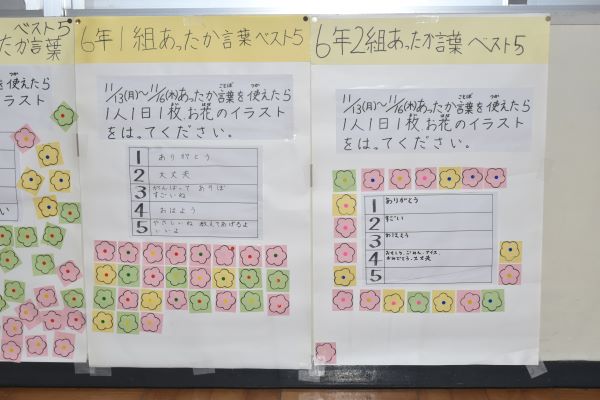 ベスト5
たか言葉
を使えたら
イラスト
6年1組あったか言葉ベスト5
11/13(月)～11/16(木)あったか言葉を使えたら
1人1日1枚、お花のイラスト
をはってください。
1 ありがとう
2 大丈夫
3 がんばって ありば
すごいね
4 おはよう
5 やさしいね 教えてあげるよ
いいよ
6年2組あったか言葉 ベスト5
11/13(月)～11/16(木)あったか言葉を使えたら
1人1日1枚、お花のイラスト
をはってください。
1 ありがとう
2 すごい
3 おはよう
4
おめでとう、大丈夫
5